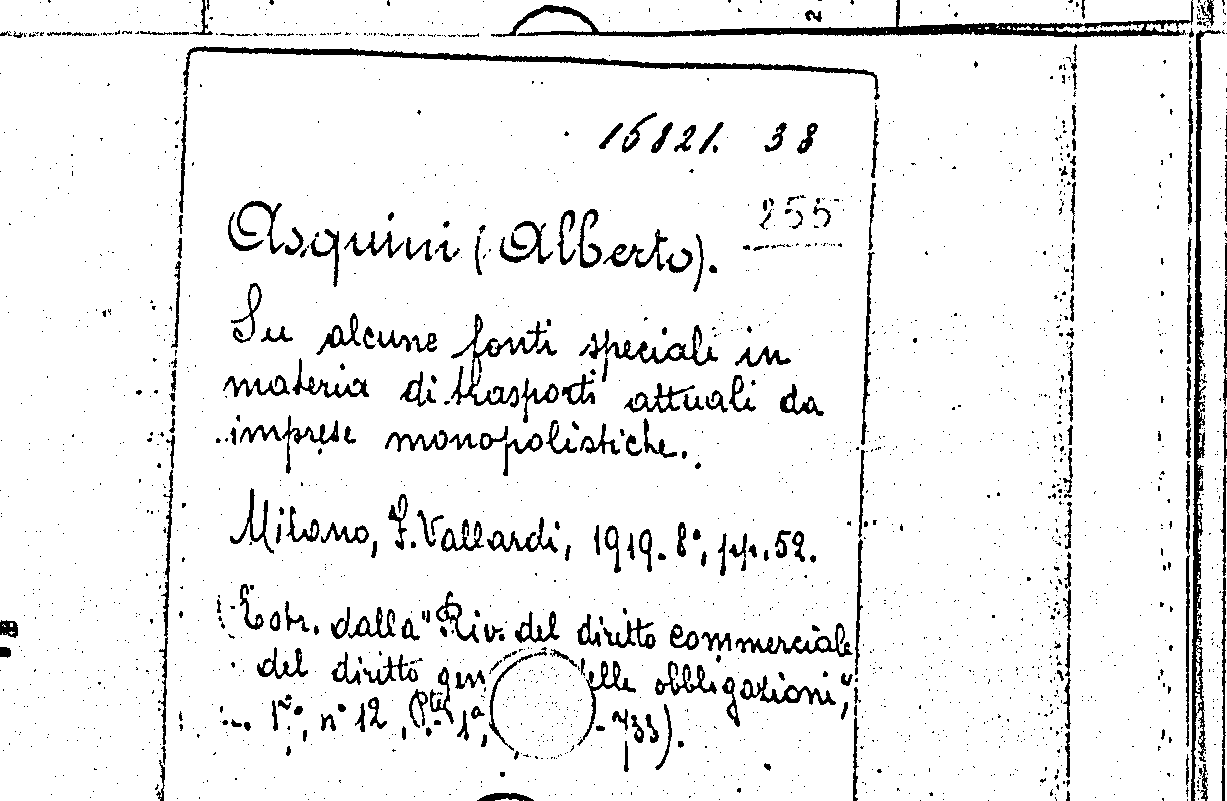 15821. 38
255
Asquini (Alberto).
Su alcune fonti speciali in
materia di trasporti attuali da
imprese monopolistiche.
Milano, F. Vallardi, 1919. 8°, pp. 52.
(Estr. dalla "Riv. del diritto commerciale
del diritto gen elle obbligazioni",
n° 12, Pte 1ª, - 733).